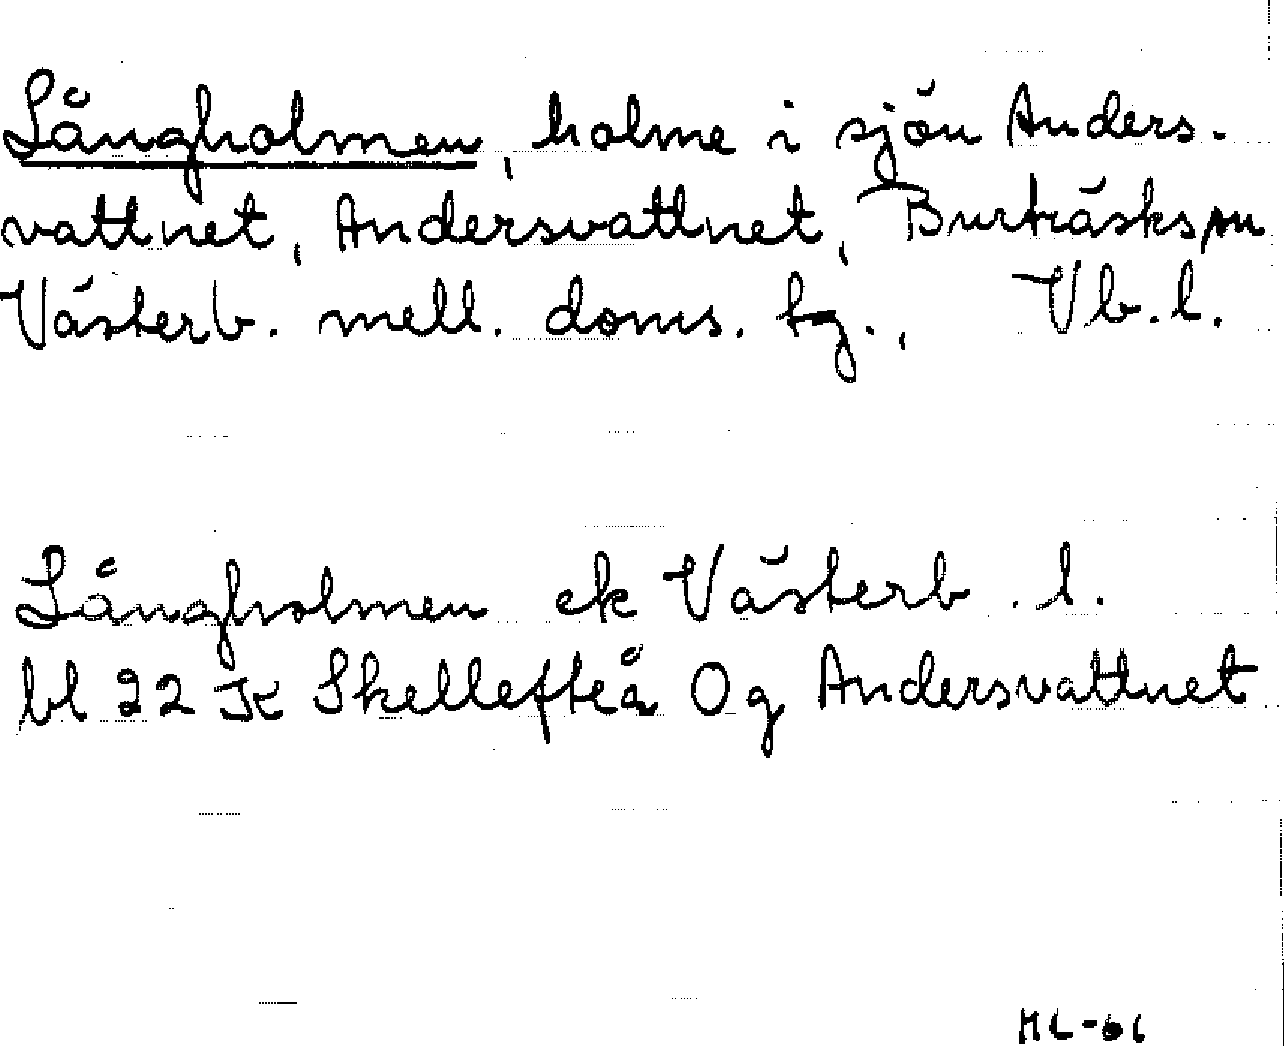 Långholmen, holme i sjön Anders-
vattnet, Andersvattnet, Burträsks sn
Västerb. mell. doms. tg., Vb. l.
Långholmen ek Västerb. l.
bl 22 K Skellefteå Og Andersvattnet